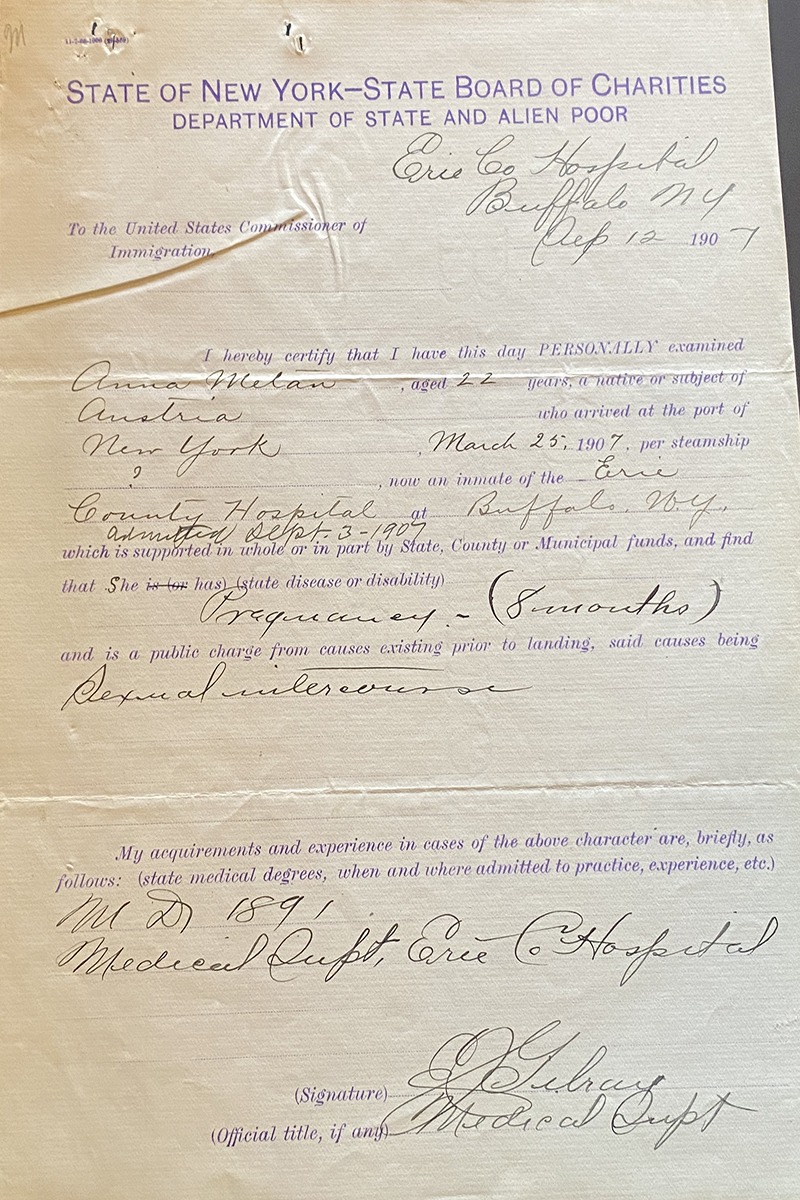 M
STATE OF NEW YORK—STATE BOARD OF CHARITIES
DEPARTMENT OF STATE AND ALIEN POOR
Erie Co Hospital
Buffalo NY
Sep 12 1907
To the United States Commissioner of
Immigration.
I hereby certify that I have this day PERSONALLY examined
Anna Metan, aged 22 years, a native or subject of
Austria who arrived at the port of
New York, March 25, 1907, per steamship
?, now an inmate of the Erie
County Hospital at Buffalo, N.Y.,
admitted Sept. 3-1907
which is supported in whole or in part by State, County or Municipal funds, and find
that She is (or has) (state disease or disability)
Pregnancy - (8 months)
and is a public charge from causes existing prior to landing, said causes being
Sexual intercourse
My acquirements and experience in cases of the above character are, briefly, as
follows: (state medical degrees, when and where admitted to practice, experience, etc.)
M D, 1891
Medical Supt, Erie Co Hospital
(Signature) E J Gilray
(Official title, if any) Medical Supt